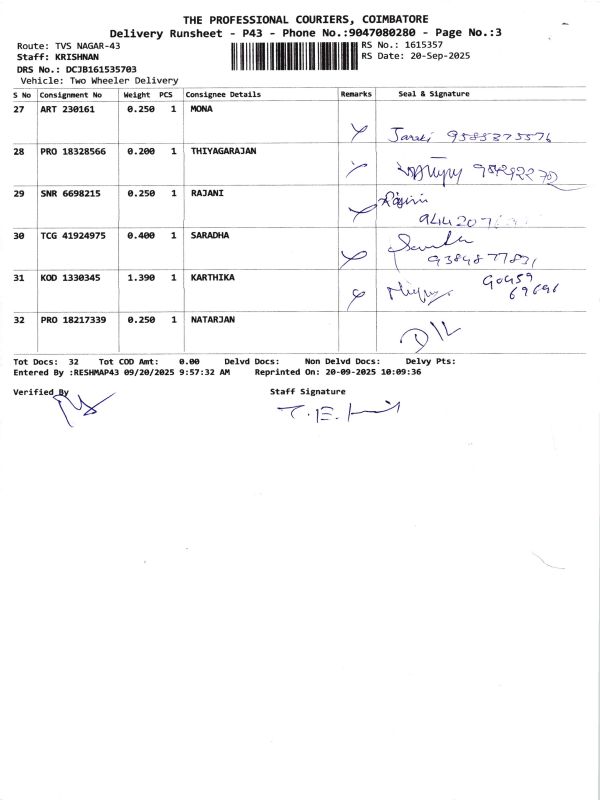 THE PROFESSIONAL COURIERS, COIMBATORE
Delivery Runsheet - P43 - Phone No.:9047080280 - Page No.:3
Route: TVS NAGAR-43 RS No.: 1615357
Staff: KRISHNAN RS Date: 20-Sep-2025
DRS No.: DCJB161535703
Vehicle: Two Wheeler Delivery
S No Consignment No Weight PCS Consignee Details Remarks Seal & Signature
27 ART 230161 0.250 1 MONA
28 PRO 18328566 0.200 1 THIYAGARAJAN
29 SNR 6698215 0.250 1 RAJANI
30 TCG 41924975 0.400 1 SARADHA
31 KOD 1330345 1.390 1 KARTHIKA
32 PRO 18217339 0.250 1 NATARJAN
Tot Docs: 32 Tot COD Amt: 0.00 Delvd Docs: Non Delvd Docs: Delvy Pts:
Entered By :RESHMAP43 09/20/2025 9:57:32 AM Reprinted On: 20-09-2025 10:09:36
Verified By Staff Signature